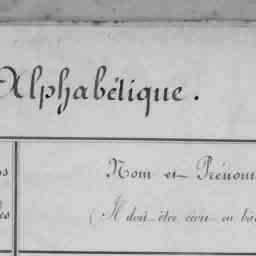 Alphabétique.
Nom et Prénom
(Il doit être écrit en
es